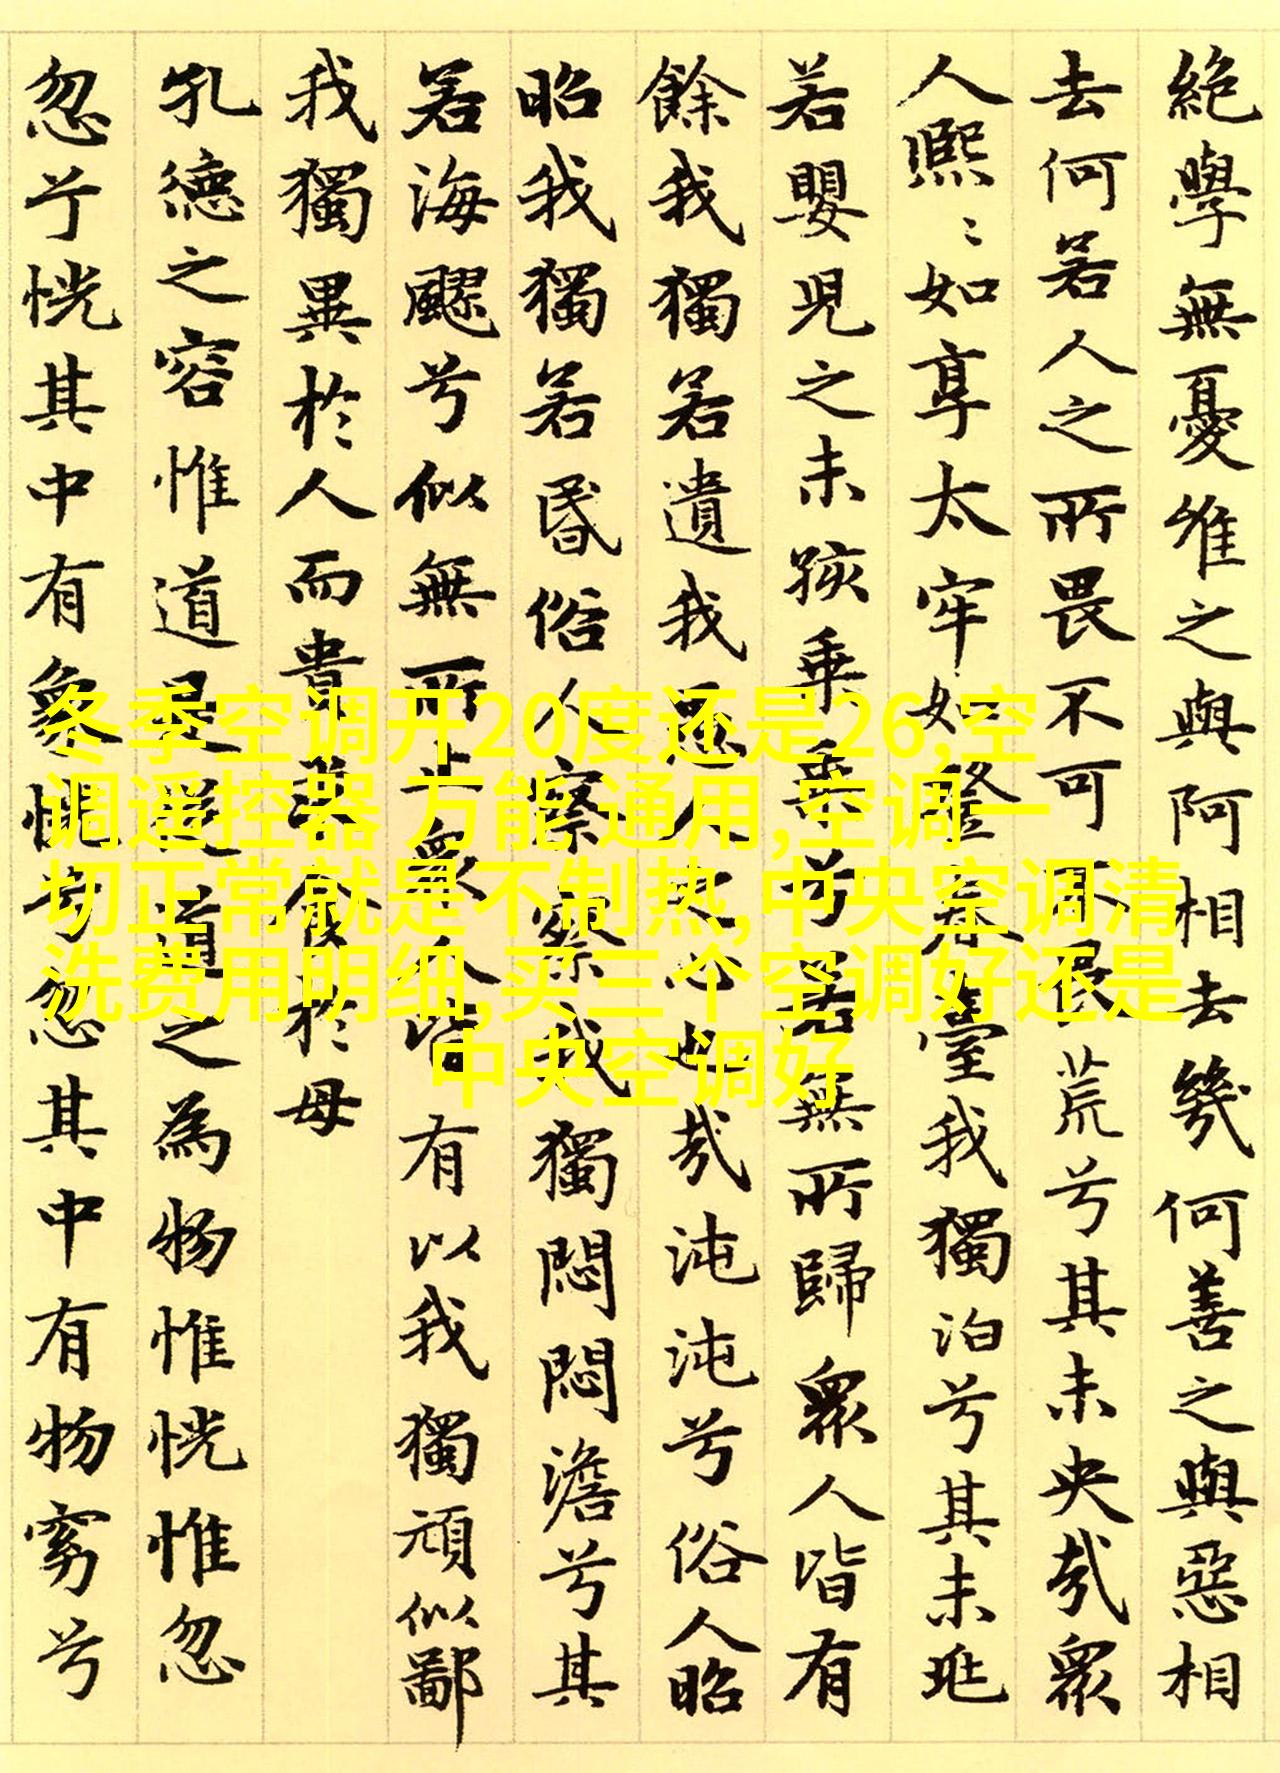 絶學無憂唯之與阿相去幾何善之與惡相
去何若人之所畏不可不畏荒兮其未央哉眾
人熙〻如享太牢如登春臺我獨泊兮其未兆
若嬰兒之未孩乗乗兮若無所歸眾人皆有
餘我獨若遺我愚人之心也哉沌沌兮俗人昭
昭我獨若昏俗人察察我獨悶悶澹兮其
若海飂兮似無所止眾人皆有以我獨頑似鄙
我獨異於人而貴求食於母
孔德之容惟道是從道之為物惟恍惟忽
忽兮恍其中有象恍兮忽其中有物窈兮
冬季空调开20度还是26,空
调遥控器 万能 通用,空调一
切正常就是不制热,中央空调清
洗费用明细,买三个空调好还是
中央空调好